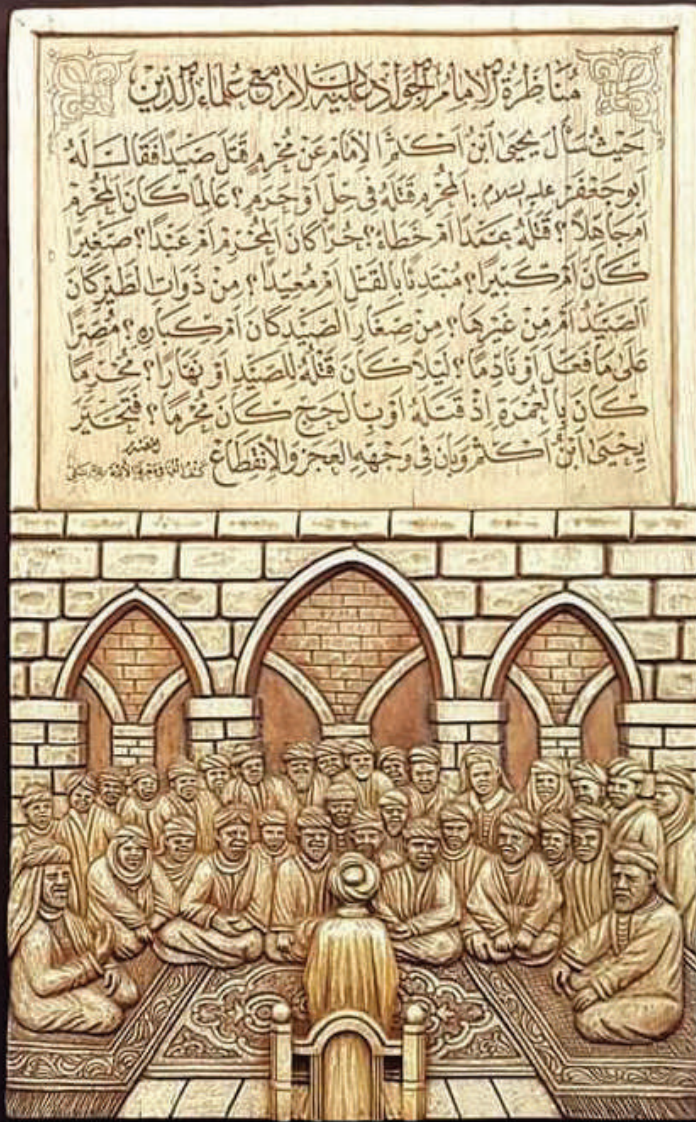 مُنَاظَرَةُ الإمَامِ الجَوَادِ عَلَيهِ السَّلَامُ مَعَ عُلَمَاءِ الدِّينِ
حَيْثُ سَأَلَ يَحْيَى ابْنُ اَكْثَمْ الإمَامَ عَنْ مُحْرِمٍ قَتَلَ صَيْدًا فَقَالَ لَهُ
ابُو جَعْفَرْ عليه السلام : المُحْرِمِ قَتَلَهُ فِى حِلٍّ اَوْ حَرَمٍ ؟ عَالِمًا كَانَ المُحْرِمُ
اَمْ جَاهِلًا ؟ قَتَلَهُ عَمْدًا اَمْ خَطَاءً ؟ حُرًّا كَانَ المُحْرِمُ اَمْ عَبْدًا ؟ صَغِيْرًا
كَانَ اَمْ كَبِيْرًا ؟ مُبْتَدِئًا بِالقَتْلِ اَمْ مُعِيْدًا ؟ مِنْ ذَوَاتِ الطَّيْرِ كَانَ
الصَّيْدُ اَمْ مِنْ غَيْرِهَا ؟ مِنْ صِغَارِ الصَّيْدِ كَانَ اَمْ كِبَارِهِ ؟ مُصِرًّا
عَلَى مَا فَعَلَ اَوْ نَادِمًا ؟ لَيْلًا كَانَ قَتْلُهُ لِلصَّيْدِ اَوْ نَهَارًا ؟ مُحْرِمًا
كَانَ بِالعُمْرَةِ اِذْ قَتَلَهُ اَوْ بِالحَجِّ كَانَ مُحْرِمًا ؟ فَتَحَيَّرَ
يَحْيَى ابْنُ اَكْثَمْ وَبَانَ فِى وَجْهِهِ العَجْزُ وَالإنْقِطَاعُ
المصدر